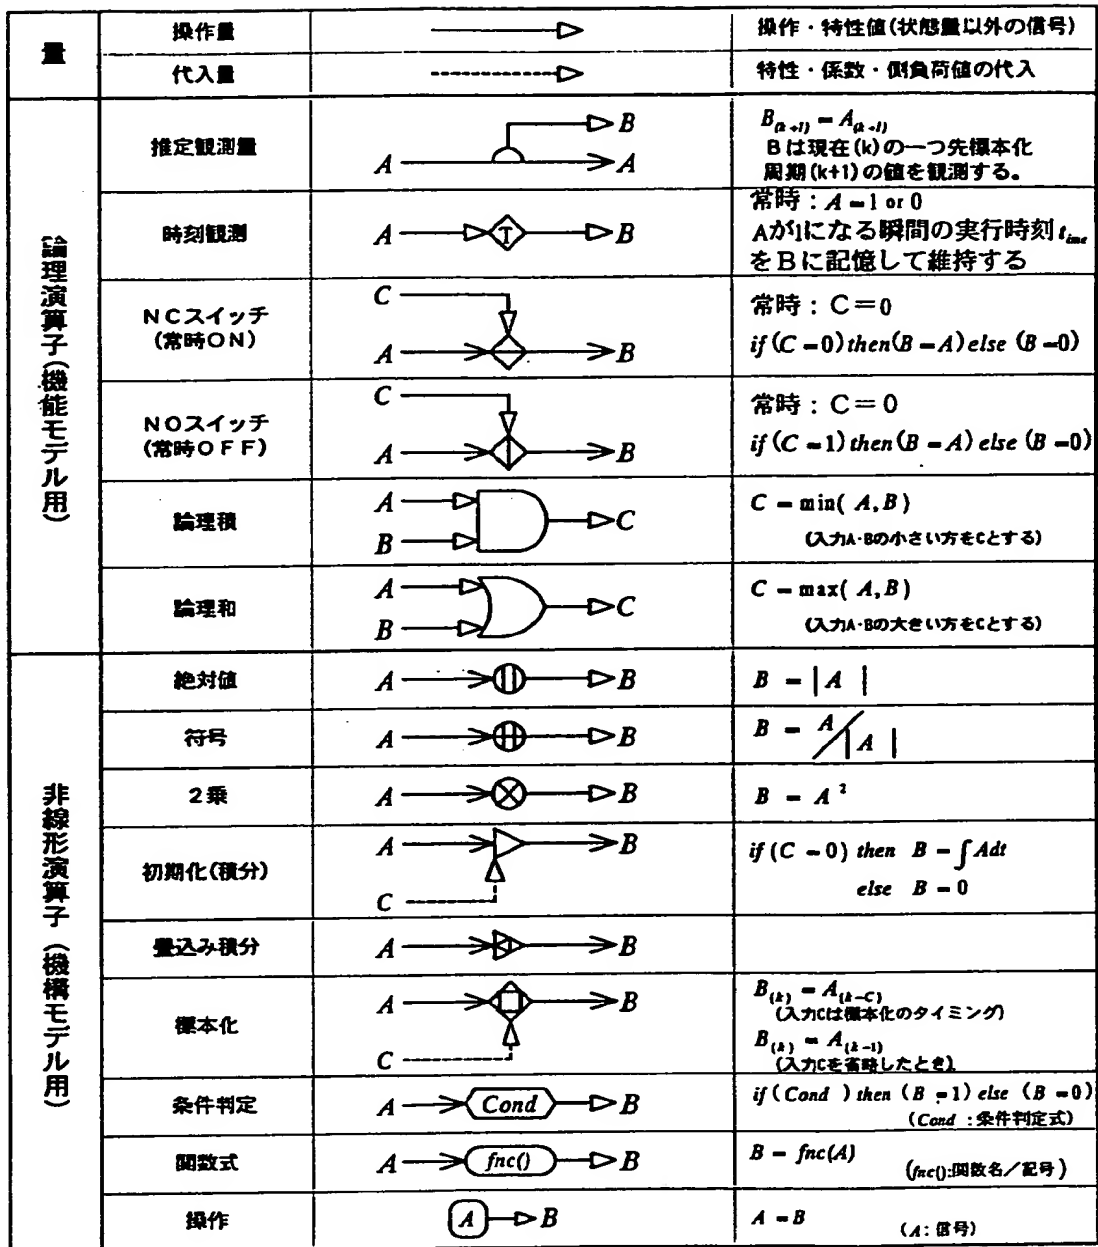 量
操作量
操作・特性値(状態量以外の信号)
代入量
特性・係数・側負荷値の代入
論理演算子(機能モデル用)
推定観測量
A
B
A
B(k+1) = A(k+1)
Bは現在(k)の一つ先標本化
周期(k+1)の値を観測する。
時刻観測
A T B
常時：A = 1 or 0
Aが1になる瞬間の実行時刻 t_ime
をBに記憶して維持する
NCスイッチ
(常時ON)
C
A B
常時：C＝0
if (C = 0) then (B = A) else (B = 0)
NOスイッチ
(常時OFF)
C
A B
常時：C＝0
if (C = 1) then (B = A) else (B = 0)
論理積
A
B
C
C = min( A, B )
(入力A・Bの小さい方をCとする)
論理和
A
B
C
C = max( A, B )
(入力A・Bの大きい方をCとする)
非線形演算子(機構モデル用)
絶対値
A B
B = | A |
符号
A B
B = A/| A |
2乗
A B
B = A ²
初期化(積分)
A B
C
if (C = 0) then B = ∫Adt
else B = 0
畳込み積分
A B
標本化
A B
C
B(k) = A(k-C)
(入力Cは標本化のタイミング)
B(k) = A(k-1)
(入力Cを省略したとき)
条件判定
A Cond B
if ( Cond ) then (B = 1) else (B = 0)
(Cond :条件判定式)
関数式
A fnc() B
B = fnc(A)
(fnc():関数名／記号)
操作
A B
A = B
(A: 信号)